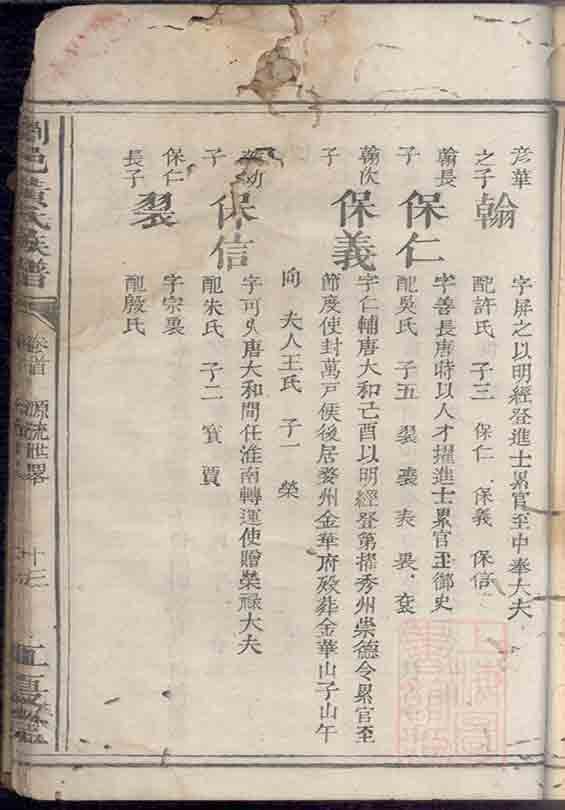 彥華
之子
翰
字屏之以明經登進士累官至中奉大夫
配許氏 子三 保仁 保義 保信
翰長
子
保仁
字善長唐時以人才擢進士累官至御史
配吳氏 子五
翰次
子
保義
字仁輔唐大和己酉以明經登第擢秀州崇德令累官至
節度使封萬戶侯後居婺州金華府歿葬金華山子山午
向 夫人王氏 子一 榮
幼
子
保信
字可 唐大和間任淮南轉運使贈榮祿大夫
配朱氏 子二 賓 賈
保仁
長子
字宗
配殷氏
邑黃氏族譜
卷首 源流世畧
江夏堂